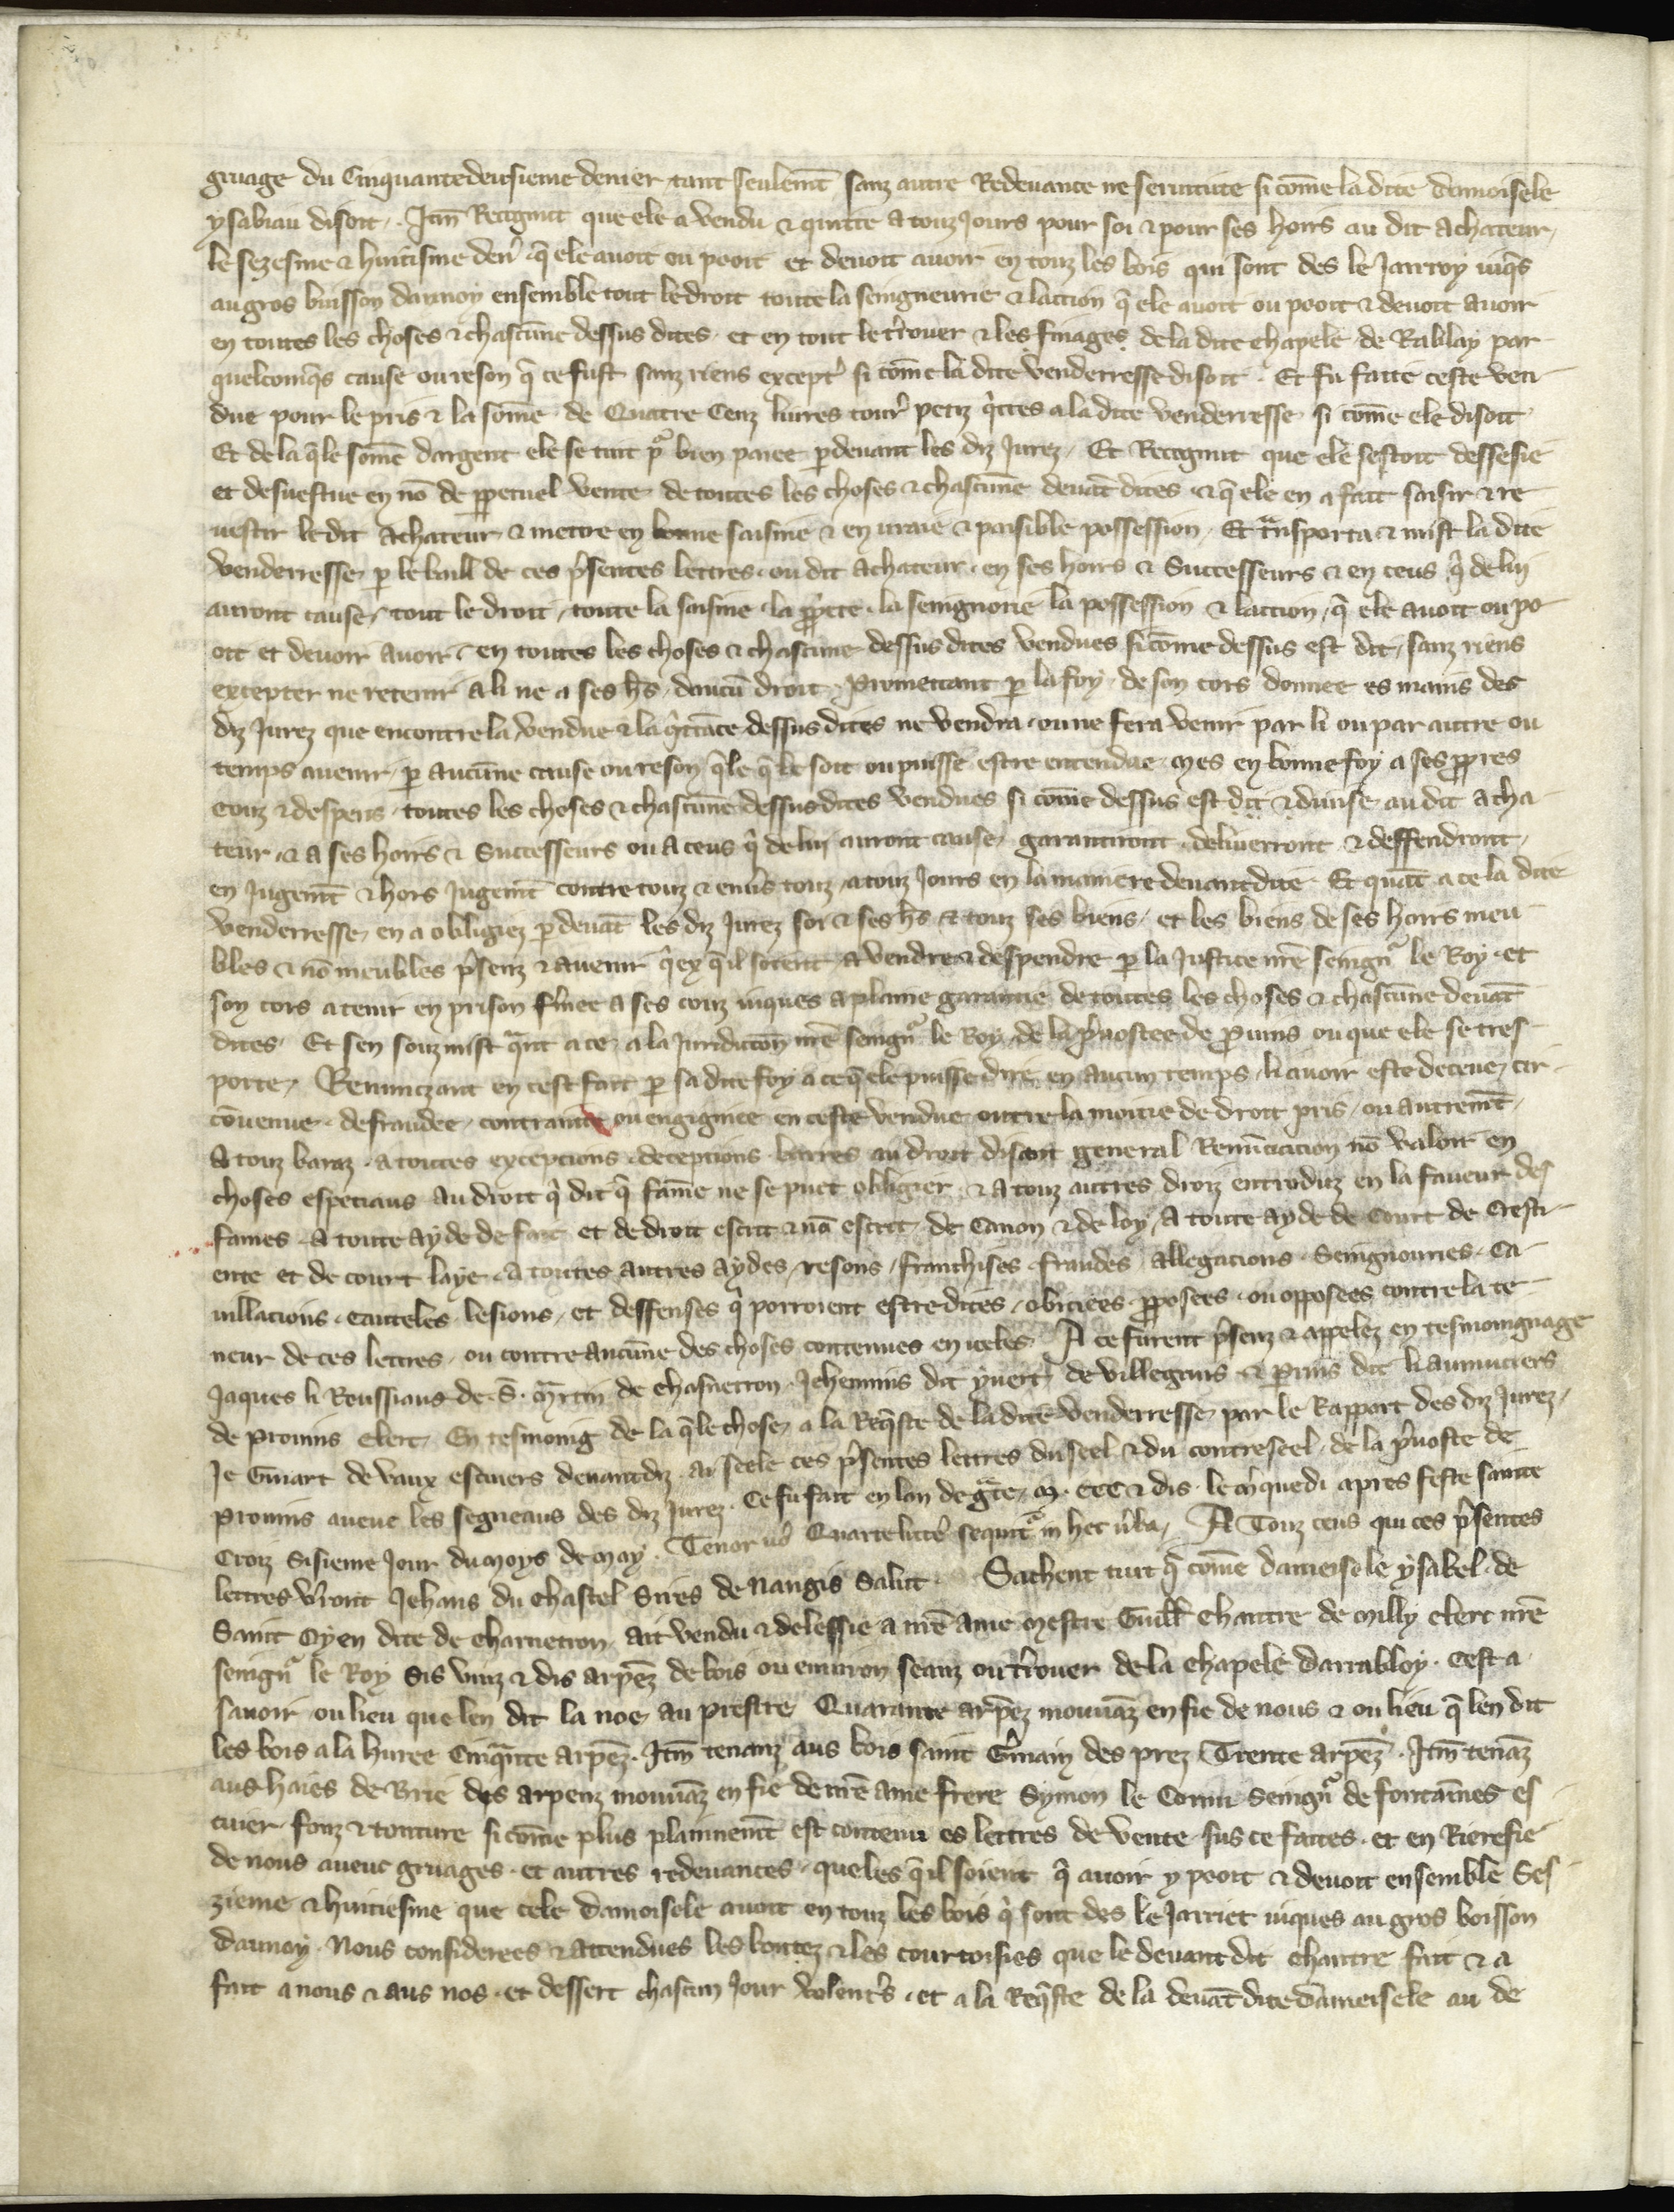 gruage du Cinquantedeusieme denier tant seulem̄t sanz autre Redeuance ne seruitute si cōme la dite damoisele
ysabiau disoit. Itm̄ Recognut que ele a vendu & quitte a touz Jours pour soi & pour ses hoirs au dit achateur
le sezesme & huitisme den̉ q̄ ele auoit ou pooit et deuoit auoir en touz les bois qui sont des le Jarroy iuqs̄
au gros buisson daunoy ensemble tout le droit toute la seingneurie & laction q̄ ele auoit ou pooit & deuoit auoir
en toutes les choses & chascūne dessus dites. et en tout le tr̉ouer & les finages de la dite chapele de Rablay par
quelconqs̄ cause ou reson q̄ ce fust sanz riens except̉ si cōme la dite venderresse disoit. Et fu faite ceste ven
due pour le pris & la sōme de Quatre Cenz liures tour̉ petiz q̉ttes a la dite venderresse si cōme ele disoit
Et de la q̄le sōme dargent ele se tint pͦ bien paiee p̱deuant les diz Jurez. Et Recognut que ele sestoit dessesie
et desuestue en nō de pp̱etuel vente de toutes les choses & chascūne deuāt dites & q̄ ele en a fait saisir & re
uestir le dit achateur & metre en bonne saisine & en uraie & paisible possession. Et tᵃnsporta & mist la dite
venderresse p̱ le bail de ces p̉sentes lettres. ou dit achateur. en ses hoirs & Successeurs & en ceus q̉ de lui
auront cause. tout le droit, toute la saisine. la pp̉ete. la seingnorie la possession & laction, q̄ ele auoit ou po
oit et deuoir auoir en toutes les choses & chascune dessus dites vendues si cōme dessus est dit, sanz riens
excepter ne retenir a li ne a ses hs̄. daucū droit. Prometant p̱ la foy. de son cors donnee es mains des
diz Jurez que encontre la vendue & la q̉ttāce dessus dites ne vendra. ou ne fera venir par li ou par autre ou
temps auenir. p̱ aucūne cause ou reson q̄le q̄ le soit ou puisse estre entendue. mes en bonne foy a ses pp̱res
couz & despens. toutes les choses & chascūne dessus dites vendues si cōme dessus est dit & diuise au dit acha
teur. & a ses hoirs & Successeurs ou a ceus q̉ de lui auront cause. garantiront. deliuerront & deffendront,
en Jugem̄t & hors Jugem̄t contre touz & enus̉ touz. a touz Jours en la maniere deuant dite. Et quāt a ce la dite
venderresse. en a obligiez p̱deuāt les diz Jurez soi & ses hs̄ & touz ses biens. et les biens de ses hoirs meu
bles & nō meubles p̉senz & auenir q̉ex q̄ il soient. a vendre & despendre p̱ la Justice nr̄e seingnͬ le Roy. et
son cors a tenir en prison fm̉ee a ses couz iuques a plaine garantie de toutes les choses & chascūne deuāt
dites. Et sen souzmist qᵃnt a ce a la Juridictōn nr̄e seingnͬ le Roy. de la p̉uostee de Prouins ou que ele se tres
porte. Renunczant en cest fait p̱ sa dite foy a ce q̄ ele puisse dire en aucun temps. li auoir este deceue, cir
cōuenue. defraudee. contrainte ou engigniee en ceste vendue outre la moitie de droit pris. ou autrem̄t,
a touz baraz. a toutes exceptions. deceptions. barres au droit disant general Renūciacion nō valoir en
choses especiaus au droit q̉ dit q̄ fāme ne se puet obligier. & a touz autres droiz entroduiz en la faueur des
fames. a toute ayde de fait et de droit escrit & nō escrit de Canon & de loy, a toute ayde de Court de Cresti
ente et de court laye. a toutes autres aydes, resons, franchises, fraudes, allegacions. Seingnouries. Ca
uillacions. cauteles. lesions. et deffenses q̉ porroient estre dites. obiciees. pp̱osees. ou opposees contre la te
neur de ces lettres. ou contre aucūne des choses contenues en iceles. A ce furent p̉senz & appelez en tesmoingnage
Jaques li Roussiaus de. S̄. Mᵃrtin de chasnetron. Jehennins dit yuert̉ de Villegruis & Prins dit li aumuciers
de Prouins clerc. En tesmoing de la q̄le chose, a la Req̄ste de la dite venderresse par le Rapport des diz Jurez,
Je Guiart de vaux escuiers deuant diz. ai seele ces p̉sentes lettres du seel & du contreseel de la p̉uoste de
Prouins aueuc les segneaus des diz Jurez. Ce fu fait en lan de gᵃce. M. CCC & dis. le m̉quedi apres feste sainte
Croiz Sisieme Jour du moys de may. Tenor uͦ Quarte litt̉e sequitͬ in hec ūba, A Touz ceus qui ces p̉sentes
lettres v̉ront Jehans du chastel Sires de Nangis Salut. Sachent tuit q̄ cōme damoisele ysabel. de
Saint Oyen dite de charnetron. ait vendu & delessie a nr̄e ame mestre Guill̉ chantre de Milly clerc nr̄e
seingnͬ le Roy Sis vinz & dis arpēz de bois ou enuiron seanz ou tr̉ouer de la chapele darrabloy. Cest a
sauoir. ou lieu que len dit la noe au prestre Quarante arpēz mouuāz en fie de nous & ou lieu q̄ len dit
les bois a la huree Cinqᵃnte arpēz. Itm̄ tenanz aus bois saint Gm̉ain des prez Trente arpēz. Itm̄ tenāz
aus haies de Brie dis arpenz mouuāz en fie de nr̄e ame frere Symon le Cornu Seingnͬ de fontaines es
cuier. fonz & tonture si cōme plus plainnem̄t est contenu es lettres de vente sus ce faites. et en Rierefie
de nous aueuc gruages. et autres redeuances. queles q̄ il soient q̉ auoir y pooit & deuoit ensemble Ses
zieme & huitiesme que cele damoisele auoit en touz les bois q̉ sont des le Jarriet iuques au gros boisson
daunoy. Nous considerees & attendues les bontez & les courtoisies que le deuant dit chantre fait & a
fait a nous & aus nos. et dessert chascun Jour volent̉s. et a la Req̄ste de la deuāt dite dameisele au de